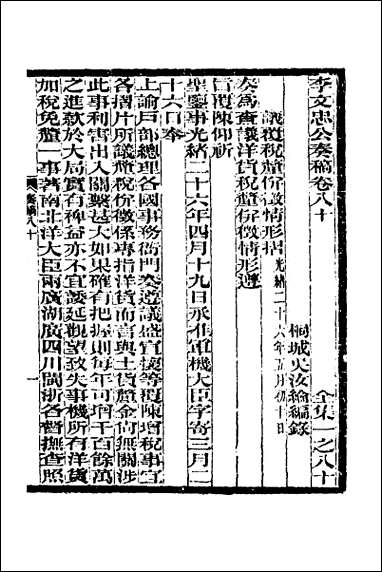 李文忠公奏稿卷八十
全集一之八十
桐城吳汝綸編錄
議覆稅釐併徵情形摺 光緒二十六年五月初十日
奏為查議洋貨稅釐併徵情形遵
旨覆陳仰祈
聖鑒事光緒二十六年四月十九日承准軍機大臣字寄三月二
十六日奉
上諭戶部總理各國事務衙門奏遵議盛宣懷等覆陳增稅事宜
各摺片所議釐稅併徵係專指洋貨而言與土貨釐金尚無關涉
此事利害出入關繫甚大如果確有把握則每年可增千百餘萬
之進款於大局實有裨益亦不宜遲延觀望致失事機所有洋貨
加稅免釐一事著南北洋大臣兩廣湖廣四川閩浙各督撫查照
奏稿八十
一